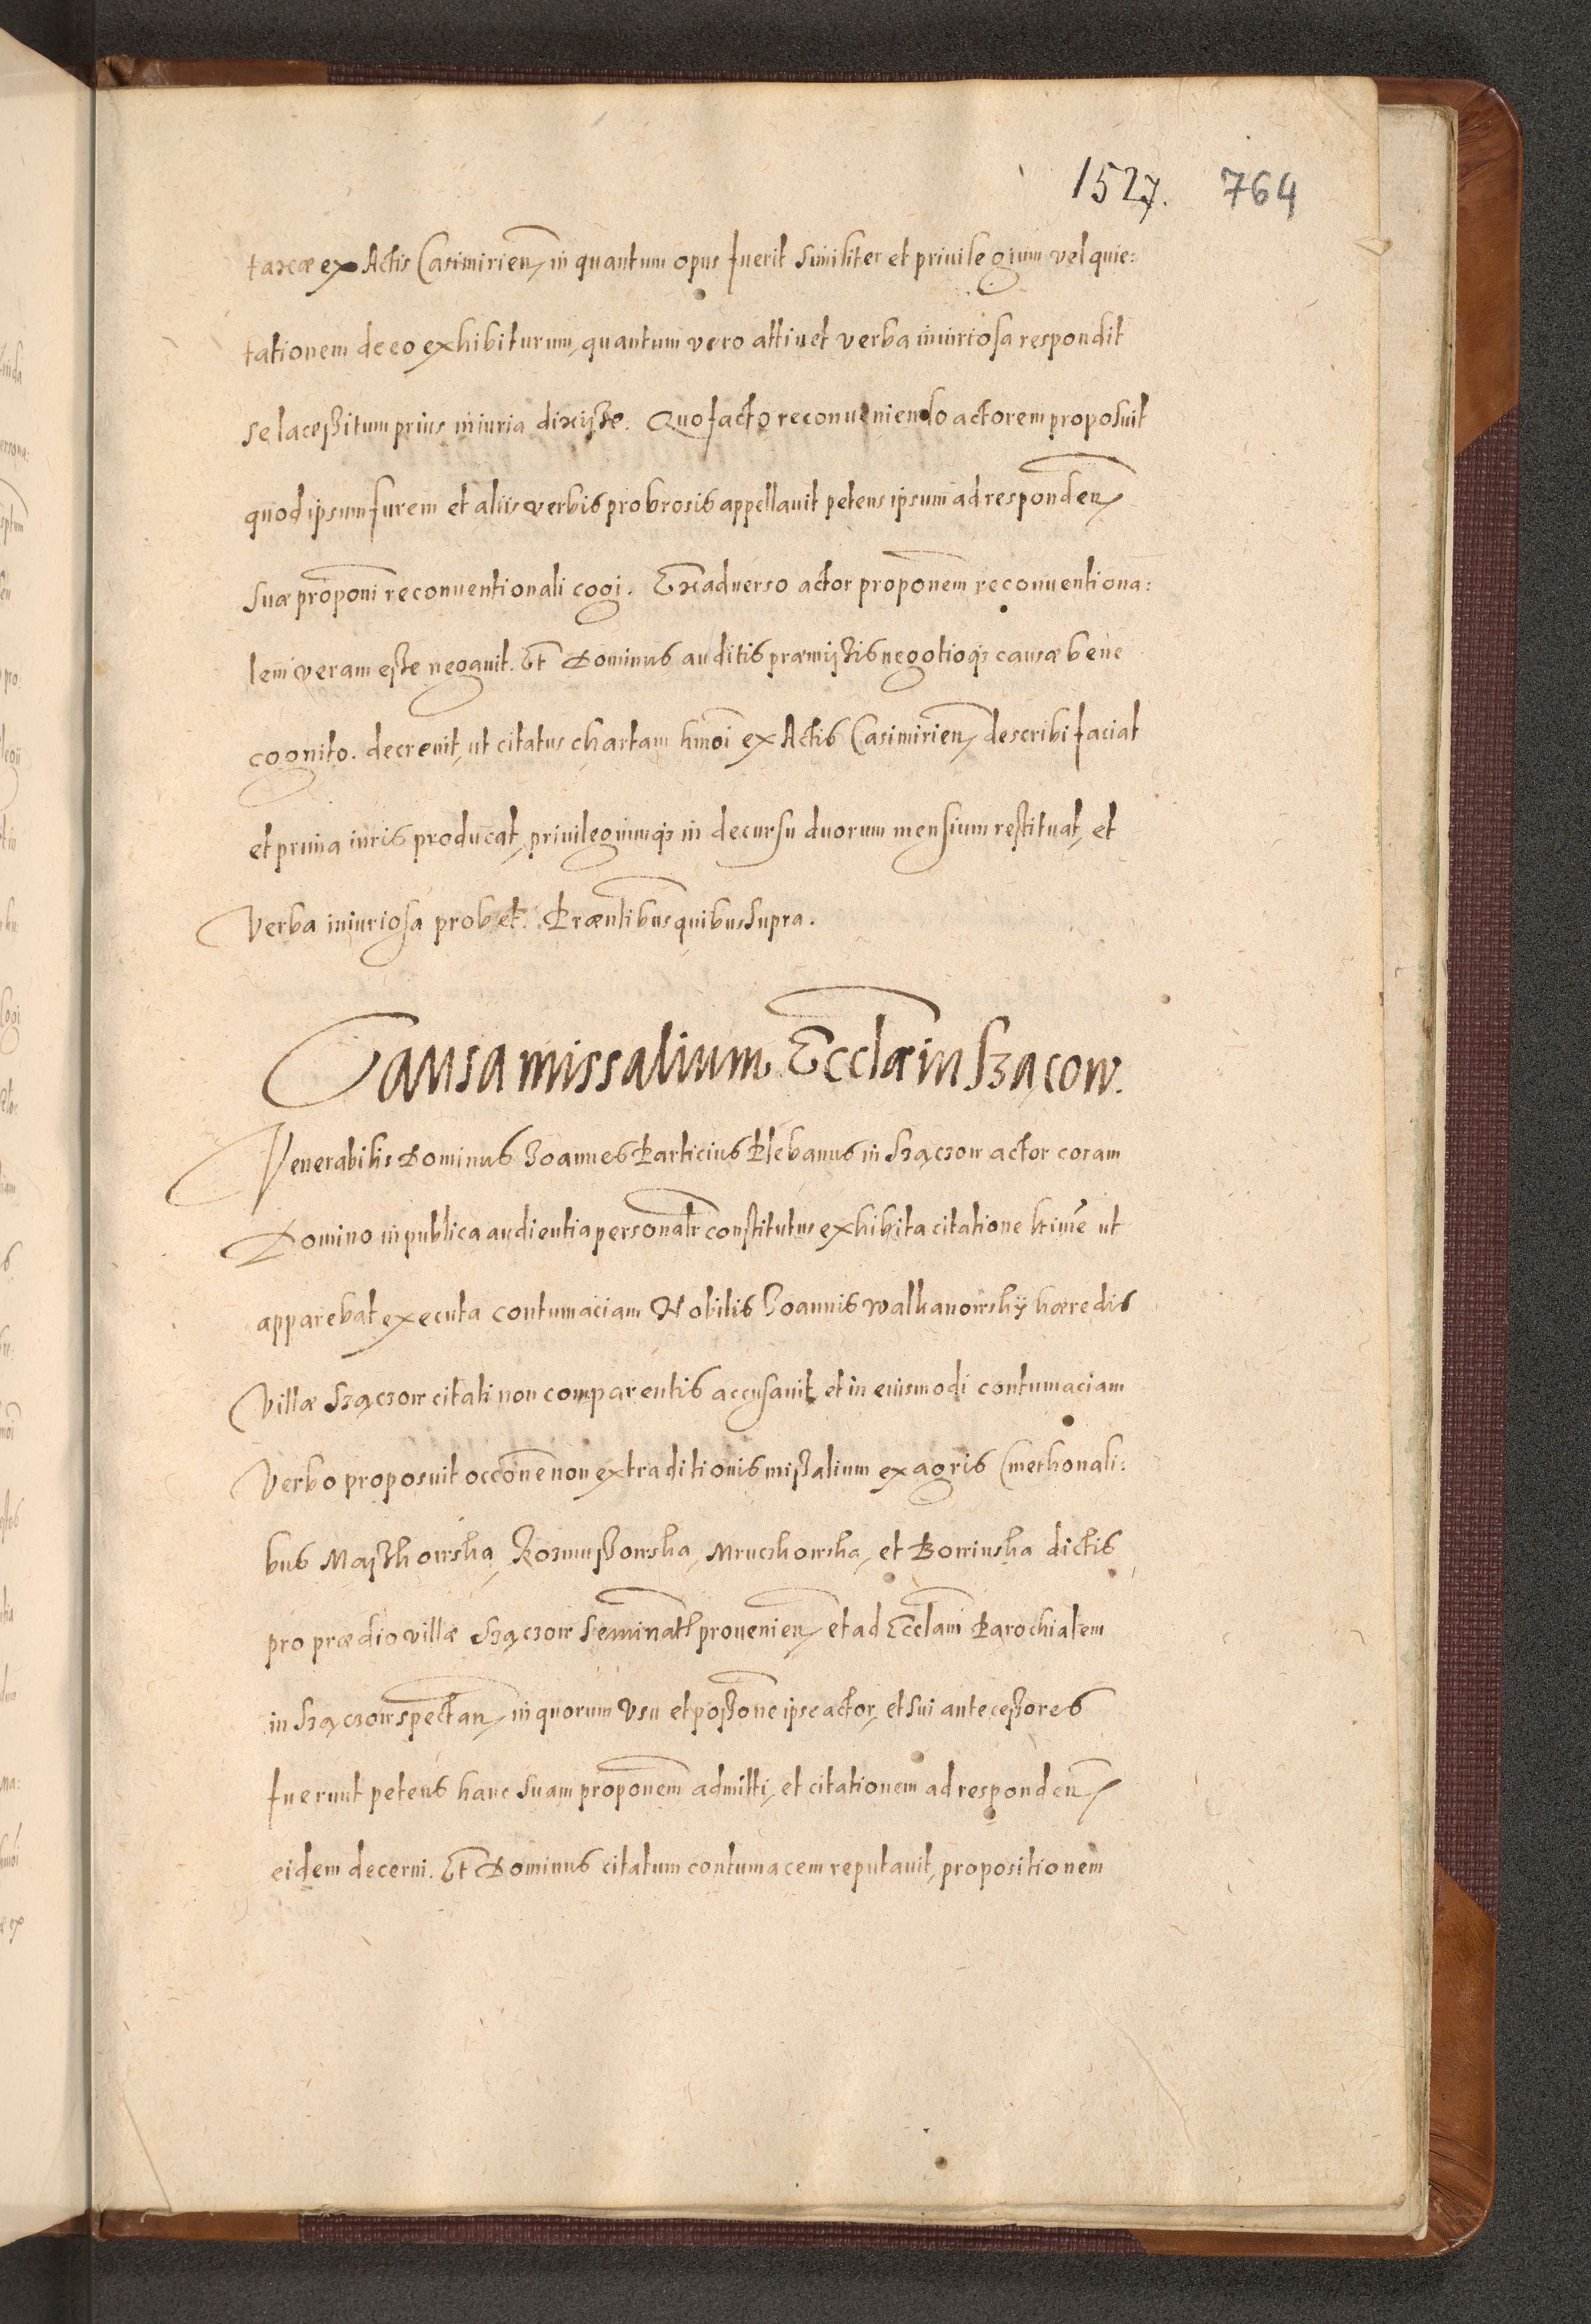 1527. 764
taxæ ex Actis Casimirien in quantum opus fuerit similiter et priuilegium vel quie:
tationem de eo exhibiturum, quantum vero attinet verba iniuriosa respondit
se lacessitum prius iniuria dixisse. Quo facto reconueniendo actorem proposuit
quod ipsum furem et aliis verbis probrosis appellauit petens ipsum ad responden
suæ proponi reconuentionali cogi. Ex aduerso actor proponem reconuentiona:
lem veram esse negauit. Et Dominus auditis præmissis negotioq3 causæ bene
cognito. decreuit, ut citatus chartam hmoi ex Actis Casimirien describi faciat
et prima iuris producat, priuilegiumq3 in decursu duorum mensium restituat, et
verba iniuriosa probet. Præntibus quibus supra.
Causa missalium Ecclæ in Szacow.
Venerabilis Dominus Joannes Particius Plebanus in Szączow actor coram
Domino in publica audientia personalr constitutus exhibita citatione ltime ut
apparebat executa contumaciam Nobilis Joannis Walkanowskÿ hæredis
villæ Szączow citati non comparentis accusauit, et in eiusmodi contumaciam
verbo proposuit occone non extraditionis missalium ex agris Cmethonali:
bus Maszkowska, Kozmussowska, Mruczkowska, et Bowinska dictis
pro prædio villæ Szączow seminatl prouenien et ad Ecclam Parochialem
in Szączow spectan in quorum vsu et possone ipse actor, et sui antecessores
fuerunt petens hanc suam proponem admitti, et citationem ad responden
eidem decerni. Et Dominus citatum contumacem reputauit, propositionem